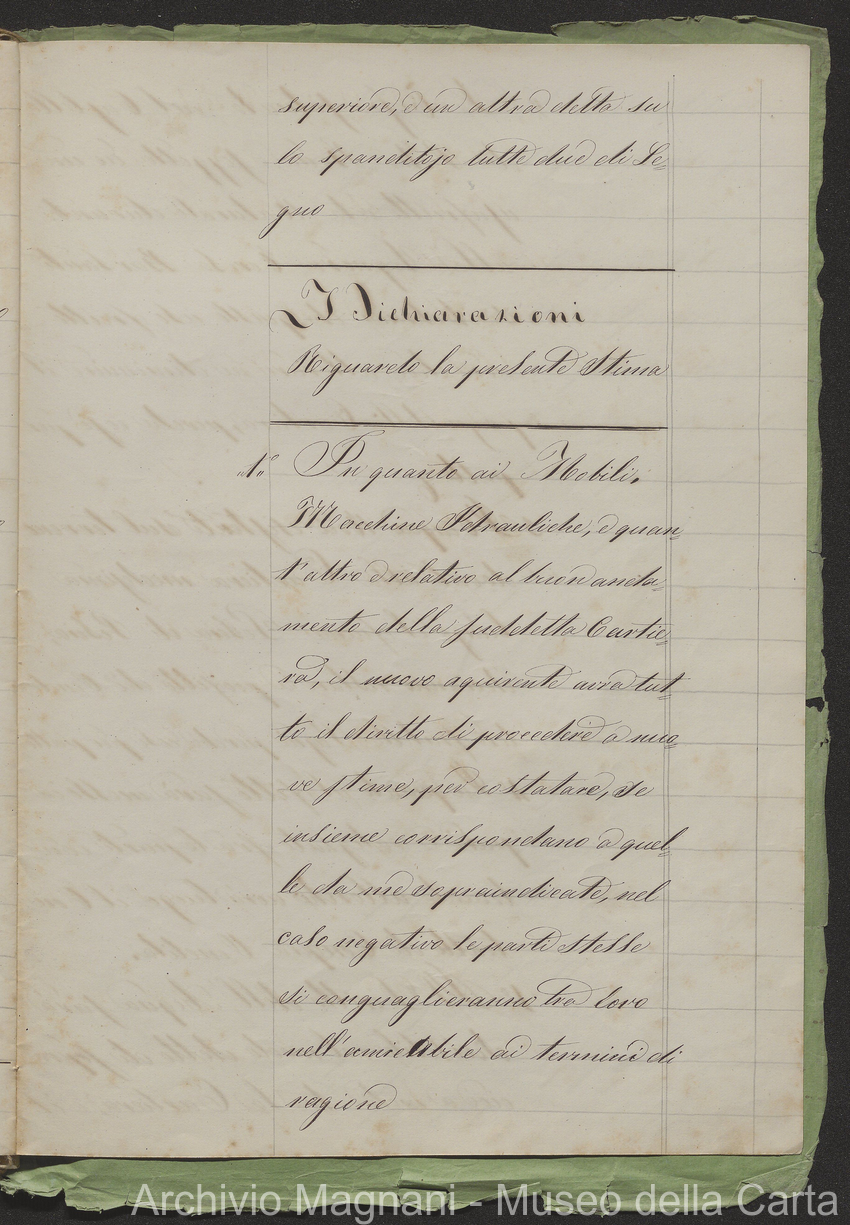 superiore, e un altra detta su
lo spanditojo tutte due di Le=
gno
Dichiarazioni
Riguardo la presente Stima
"1.° In quanto ai Mobili,
Macchine Idrauliche, e quan=
t'altro è relativo al buon anda=
mento della suddetta Cartie=
ra, il nuovo aquirente avrà tut=
to il diritto di procedere a nuo=
ve stime, per costatare, se
insieme corrispondano a quel=
le da me sopraindicate, nel
caso negativo le parti stesse
si conguaglieranno tra loro
nell'amicabile ai termini di
ragione
Archivio Magnani - Museo della Carta